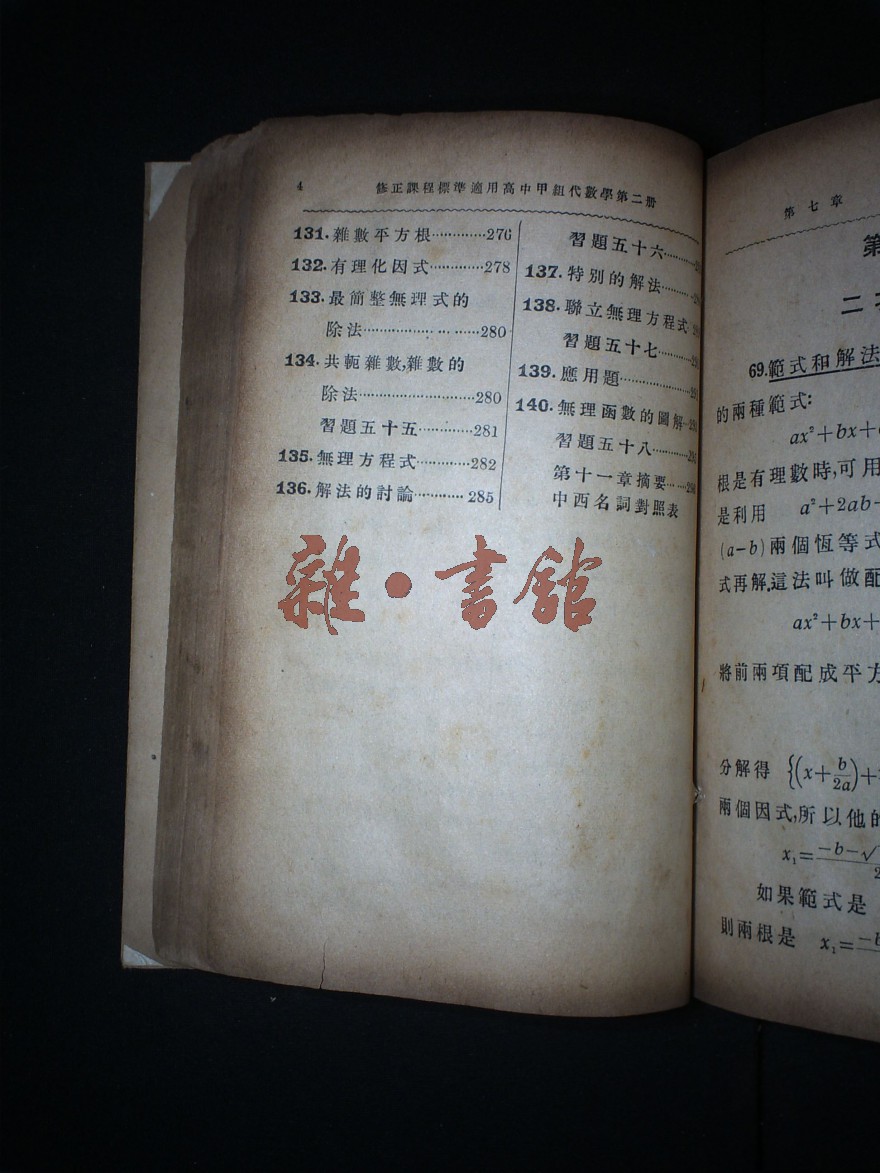 4 修正課程標準適用高中甲組代數學第二册
131.雜數平方根·············276
132.有理化因式·············278
133.最簡整無理式的
除法··························280
134.共軛雜數,雜數的
除法··························280
習題五十五·············281
135.無理方程式·············282
136.解法的討論············285
習題五十六
137.特别的解法
138.聯立無理方程式
習題五十七
139.應用題
140.無理函數的圖解
習題五十八
第十一章摘要
中西名詞對照表
雜·書館
第七章
第
二
69.範式和解法
的兩種範式:
ax²+bx+
根是有理數時,可用
是利用 a²+2ab
(a-b)兩個恆等式
式再解.這法叫做配
ax²+bx+
將前兩項配成平方
分解得 {(x+b/2a)+
兩個因式,所以他的
x₁=-b-√
如果範式是
則兩根是 x₁=-b